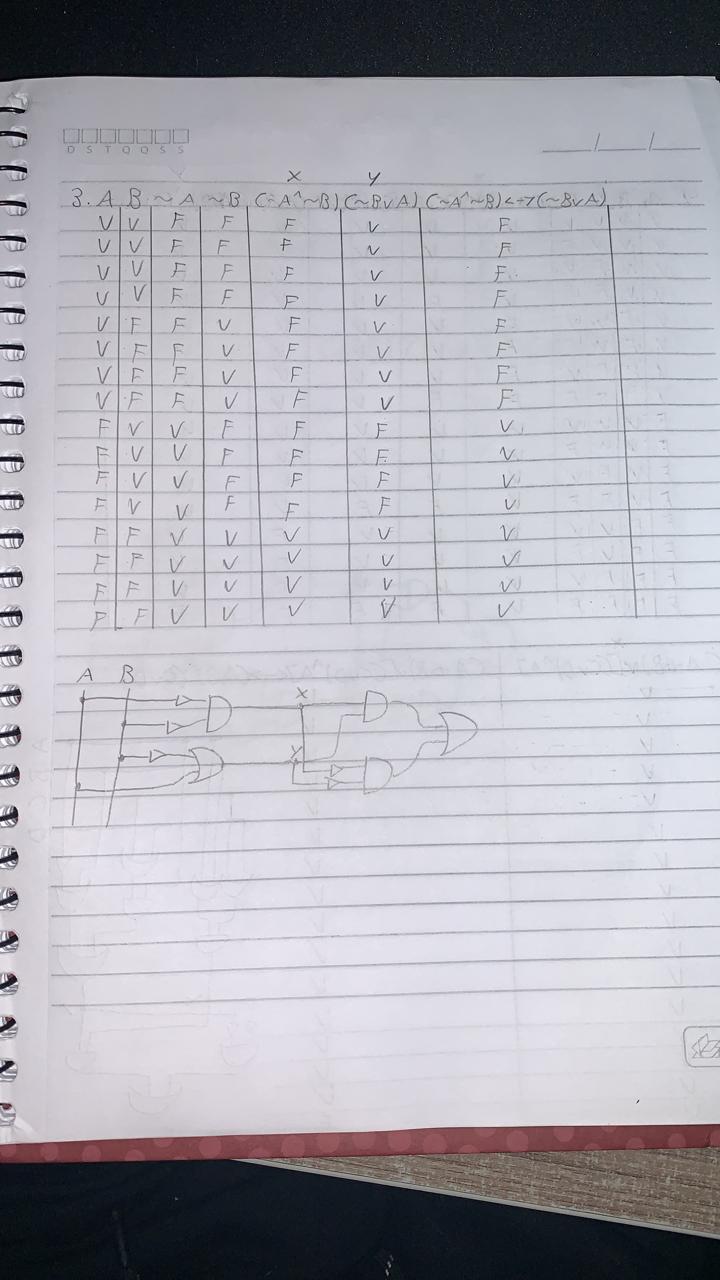 D S T Q Q S S
/ /
X Y
3. A B ~A ~B (~A^~B) (~BvA) (~A^~B)<->(~BvA)
V V F F F V F
V V F F F V F
V V F F F V F
V V F F F V F
V F F V F V F
V F F V F V F
V F F V F V F
V F F V F V F
F V V F F F V
F V V F F F V
F V V F F F V
F V V F F F V
F F V V V V V
F F V V V V V
F F V V V V V
F F V V V V V
A B
X
Y